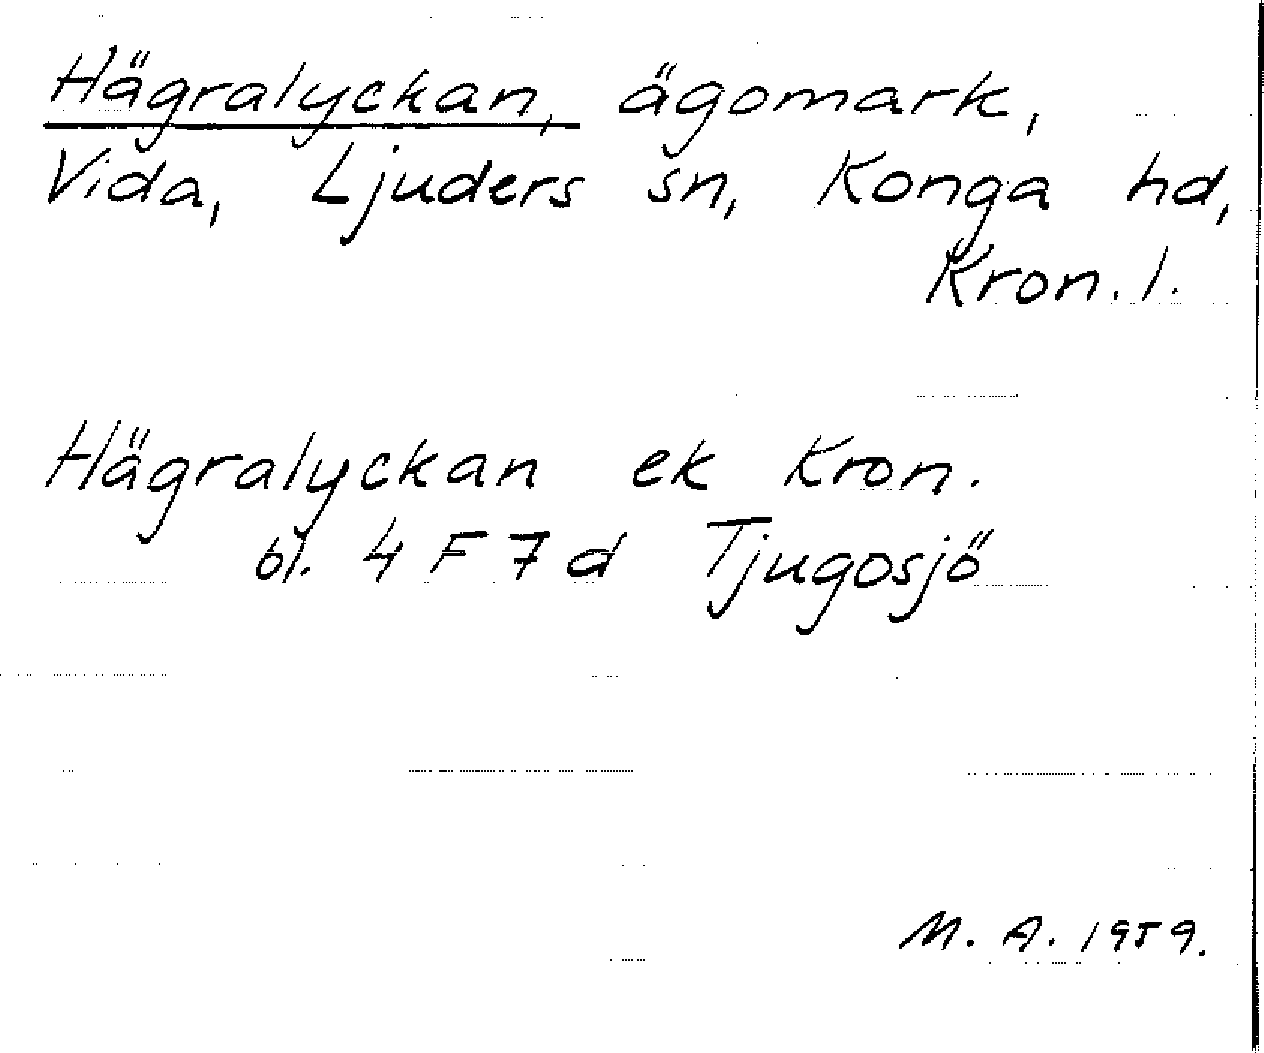 Hägralyckan, ägomark,
Vida, Ljuders sn, Konga hd,
Kron. l.
Hägralyckan ek Kron.
bl. 4 F 7 d Tjugosjö
M. A. 1959.